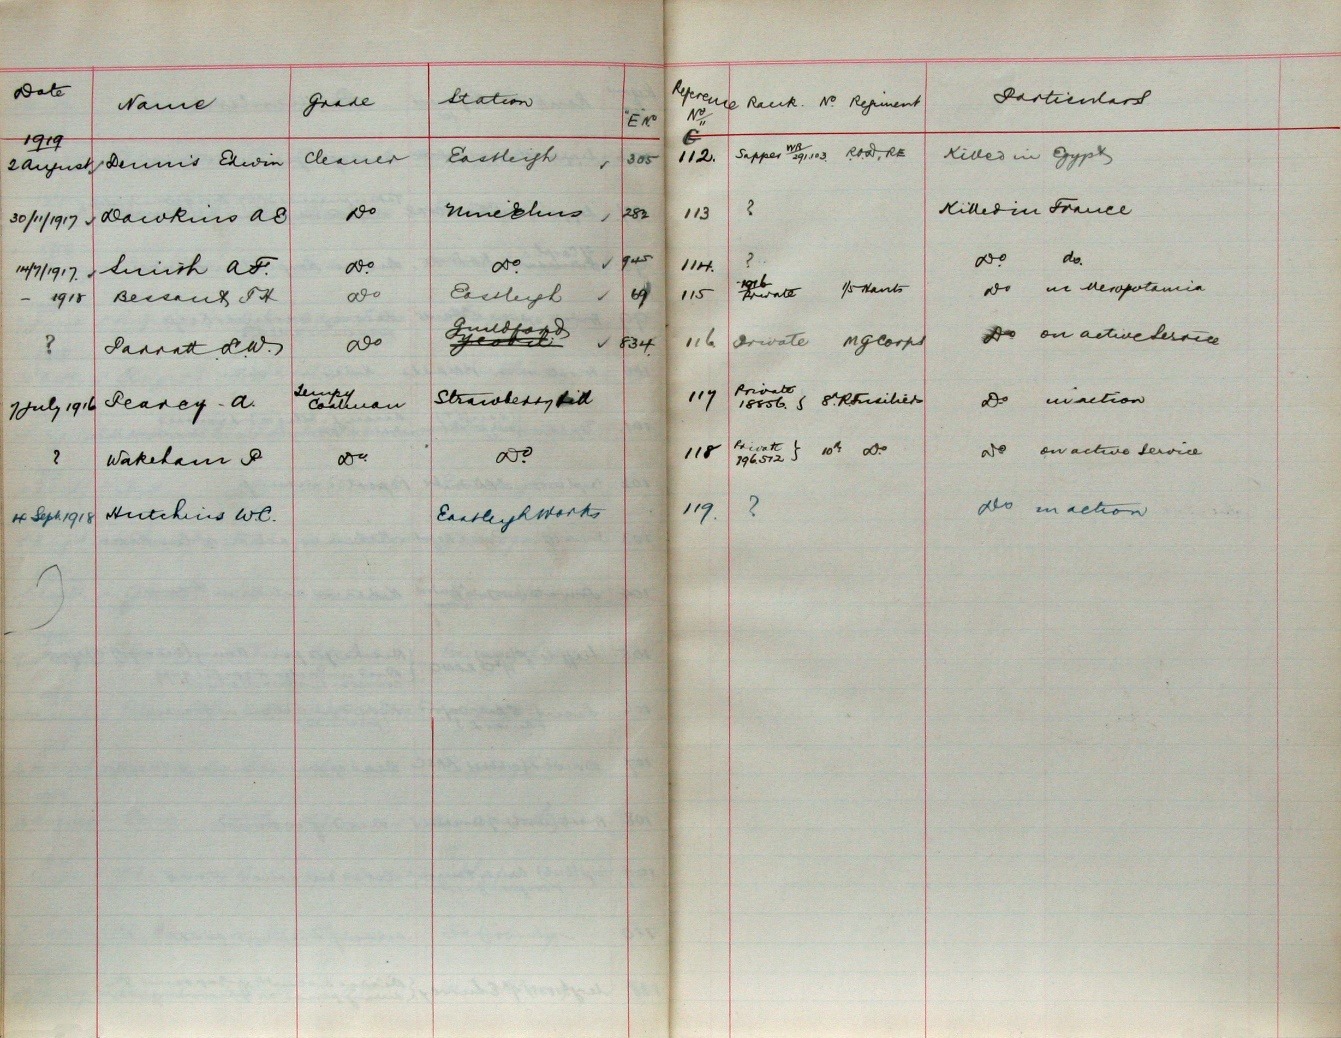 Date Name Grade Station "E No Reference No Rank. No. Regiment Particulars
1919
2 August Dennis Edwin Cleaner Eastleigh 305 112. Sapper WR/291103 R.O.D, RE Killed in Egypt
30/11/1917 Dawkins A E Do Nine Elms 282 113 ? Killed in France
14/7/1917. Smith A.F. Do. Do. 945 114. ? Do do.
1916
- 1918 Bessant Eastleigh 69 115 Private 1/5 Hants Do in Mesopotamia
Guildford
? Parratt L.W. Do Yeovil 834. 116 Private M G Corps Do on active Service
Tempy Private
7 July 1916 Pearcy - A. Coalman Strawberry Hill 117 18856. } 8th R Fusiliers Do in action
Private
? Wakeham P Do. Do. 118 796512 } 10th Do Do on active Service
4 Sept. 1918 Hutchins W.C. Eastleigh Works 119. ? Do in action